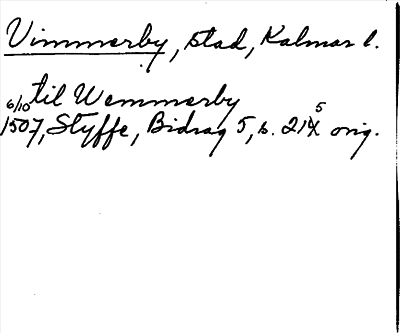 Vimmerby, stad, Kalmar l.
til Wemmerby
6/10 1507, Styffe, Bidrag 5, s. 215 orig.